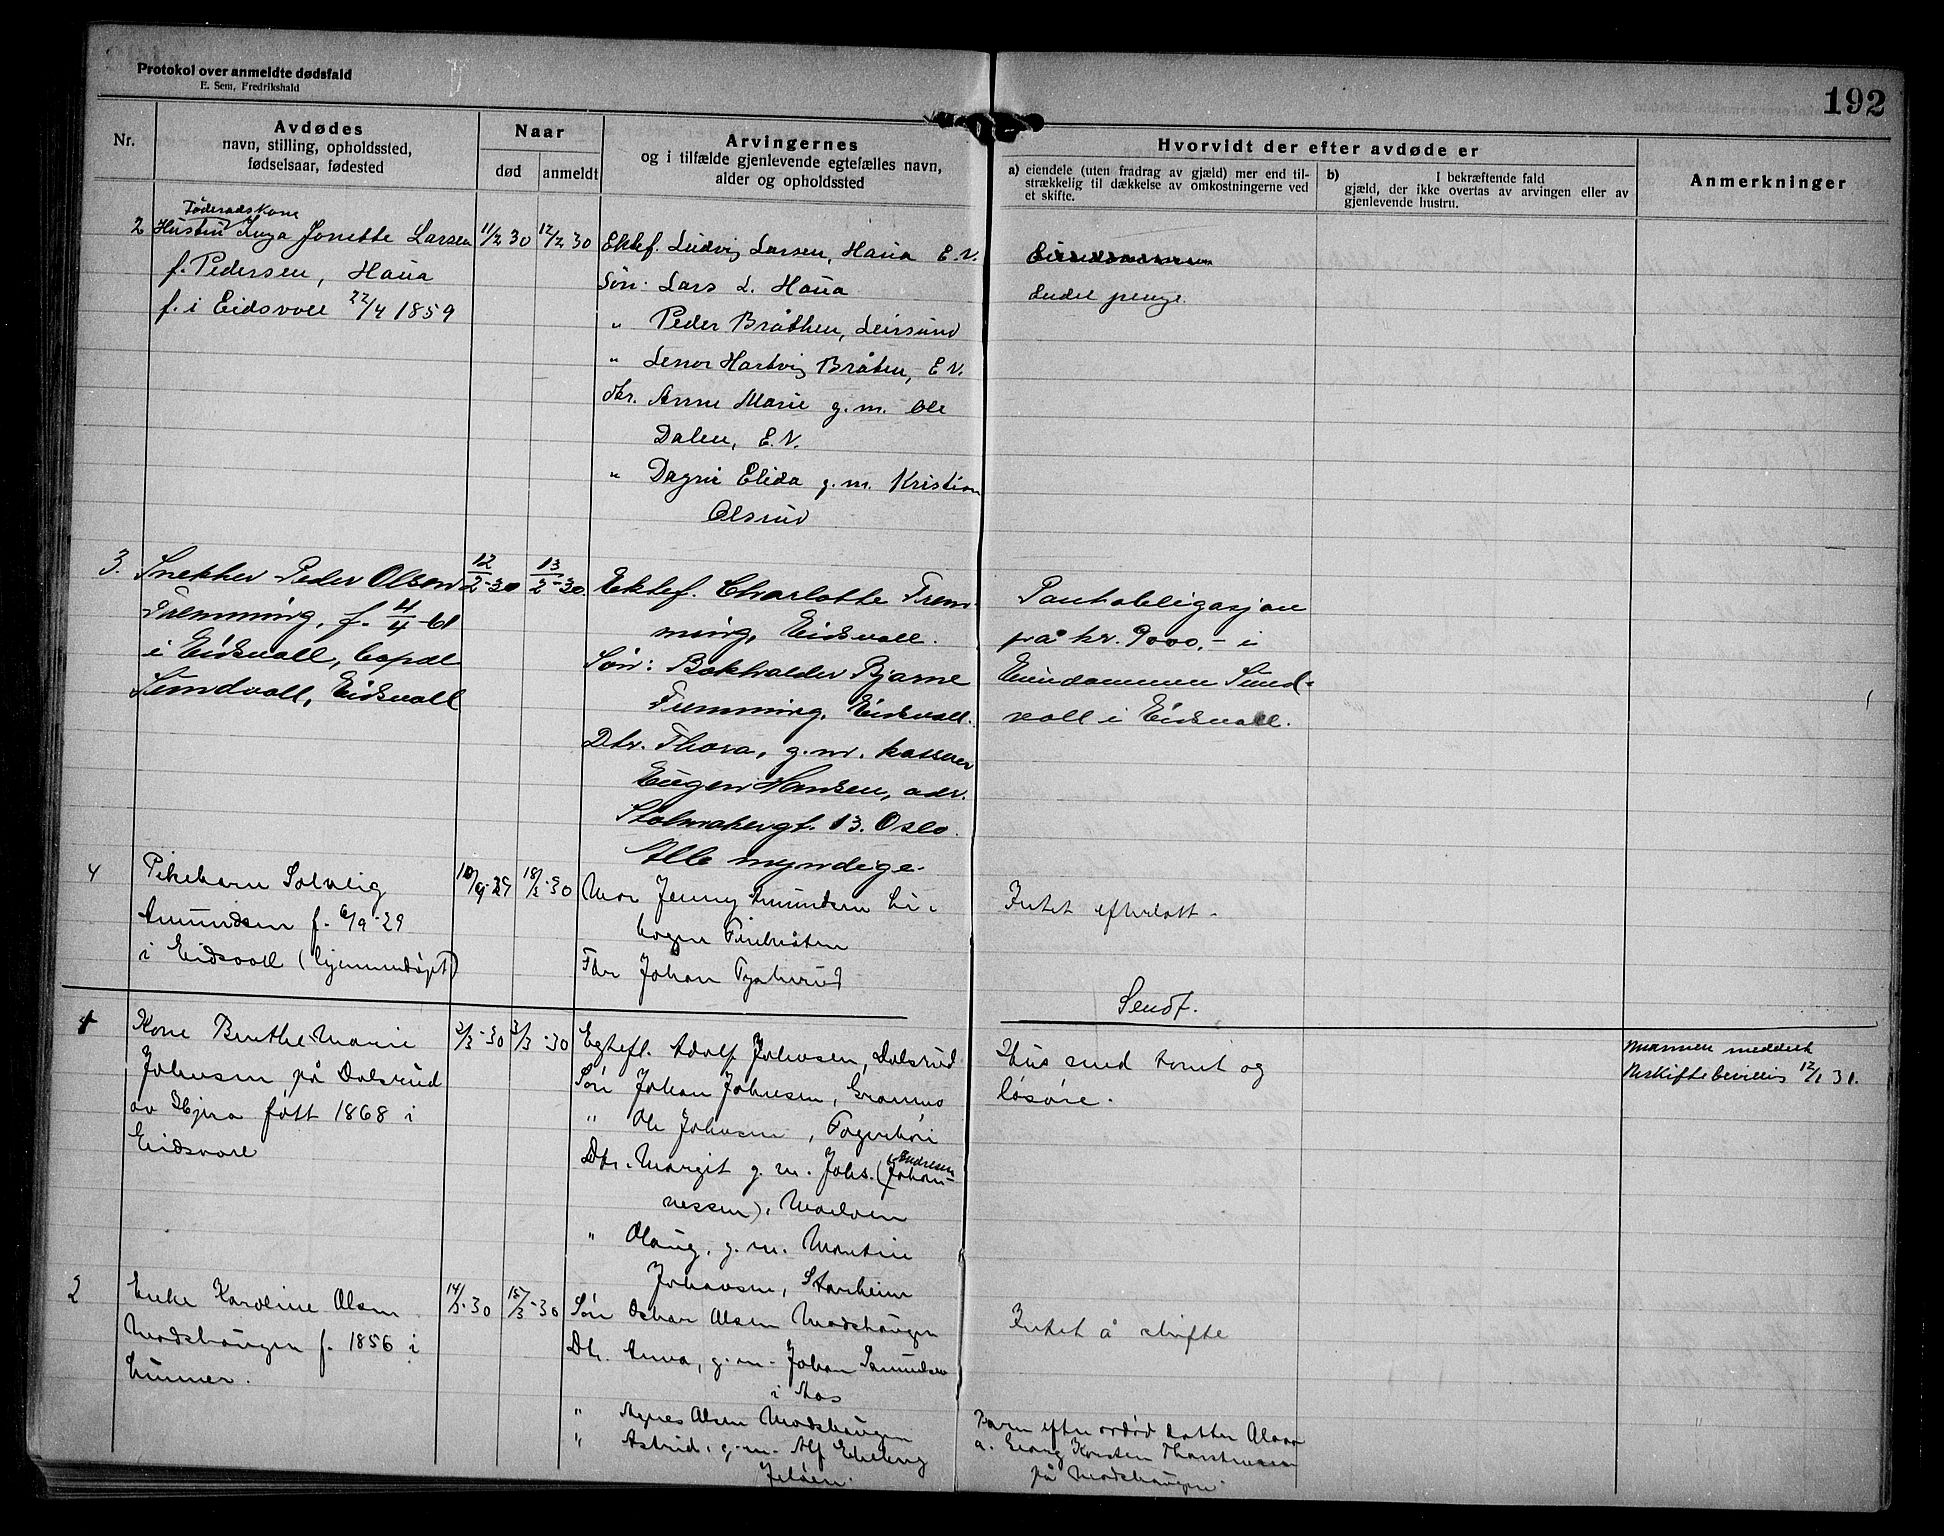 Protokol over anmeldte dødsfald
E. Sem, Fredrikshald
192
Nr.
Avdødes
navn, stilling, opholdssted,
fødselsaar, fødested
Naar
død
anmeldt
Arvingernes
og i tilfælde gjenlevende egtefælles navn,
alder og opholdssted
Hvorvidt der efter avdøde er
a) eiendele (uten fradrag av gjæld) mer end til-
strækkelig til dækkelse av omkostningerne ved
et skifte.
b) I bekræftende fald
gjæld, der ikke overtas av arvingen eller av
gjenlevende hustru.
Anmerkninger
2
Føderadskone
Hustru Inga Jonette Larsen
f. Pedersen, Haua
f. i Eidsvoll 22/4 1859
11/2 30
12/2 30
Ektef. Ludvig Larsen, Haua E.V.
Søn: Lars L. Haua
" Peder Bråthen, Leirsund
" Lenor Hartvig Bråten, E.V.
dtr. Anne Marie g.m. Ole
Dalen, E.V.
" Dagni Elida g.m. Kristian
Olsrud
Endel penge.
3.
Snekker Peder Olsen
Fremming, f. 4/4-61
i Eidsvall, bopæl
Sundvoll, Eidsvall
12/2-30
13/2-30
Ektef. Charlotte Frem-
ming, Eidsvall.
Søn: Bokholder Bjarne
Fremming, Eidsvall.
Dtr. Thora, g.m. kasserer
Eugen Hansen, adr.
Stolmakergt. 13. Oslo.
Alle myndige.
Pantobligasjon
på kr. 9000,- i
Eiendommen Sund-
voll i Eidsvall.
4
Pikebarn Solveig
Amundsen f. 6/9-29
i Eidsvoll (hjemmedøpt)
10/9-29
18/2-30
Mor Jenny Amundsen
Far Johan
Intet efterlatt-
Sendt.
1
Kone Berthe Marie
Johnsen på Dalsrud
av Hjera født 1868 i
Eidsvoll
2/3-30
3/3-30
Egtefl. Adolf Johnsen, Dalsrud
Søn Johan Johnsen,
" Ole Johnsen,
Dtr. Margit g.m. Johs. (Endresen
Johan-
nessen),
" Olaug, g.m. Martin
Johansen, Starheim
Hus med tomt og
løsøre.
Mannen meddelt
uskiftebevilling 12/1 31.
2
Enke Karoline Olsen
Modshaugen f. 1856 i
14/3-30
15/3-30
Søn Oskar Olsen Modshaugen
Dtr. Anna, g.m. Johan
i Aas
" Agnes Olsen Modshaugen
" Astrid, g.m. Alf
Jeløen.
Intet å skifte
Barn efter avdød datter
a. Georg Karsten
på Modshaugen.